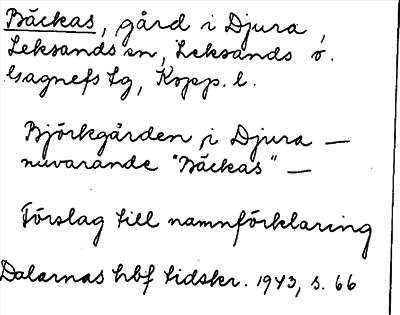 Bäckas, gård i Djura,
Leksands sn, Leksands o.
Gagnefs tg, Kopp. l.
Björkgården i Djura —
nuvarande "Bäckas" —
Förslag till namnförklaring
Dalarnas hbf tidskr. 1943, s. 66